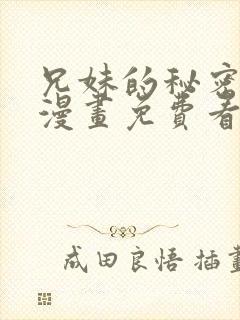 兄妹的秘密
漫畫免費看
成田良悟 插畫